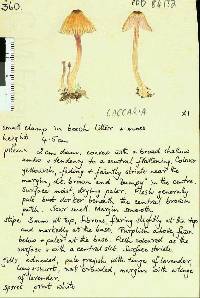 360.
PDD 84172
LACCARIA
x1
small clump in beech litter & moss
height: 4-5 cm
pileus: 2cm diam, convex with a broad shallow
umbo & tendency to a central flattening. Colour
yellowish, fading & faintly striate near the
margin, dk. brown and bumpy in the centre.
Surface moist, drying paler. Flesh generally
pale but darker beneath the central brown
patch. Sour smell. Margin smooth.
stipe: 3mm at top, fibrous, flaring slightly at the top
and markedly at the base. Purplish above,
below paler at the base. Flesh coloured as the
surface & with a central slit. Surface striate.
gills adnexed, pale greyish with tinge of lavender,
margins with a tinge
of lavender.
spores: print white